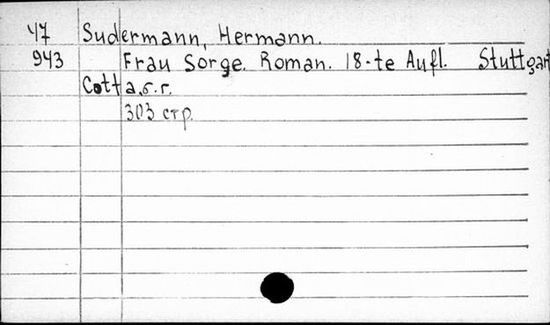 47 Sudermann, Hermann.
943 Frau Sorge. Roman. 18-te Aufl. Stuttgart
Cotta, б.г.
303 стр.